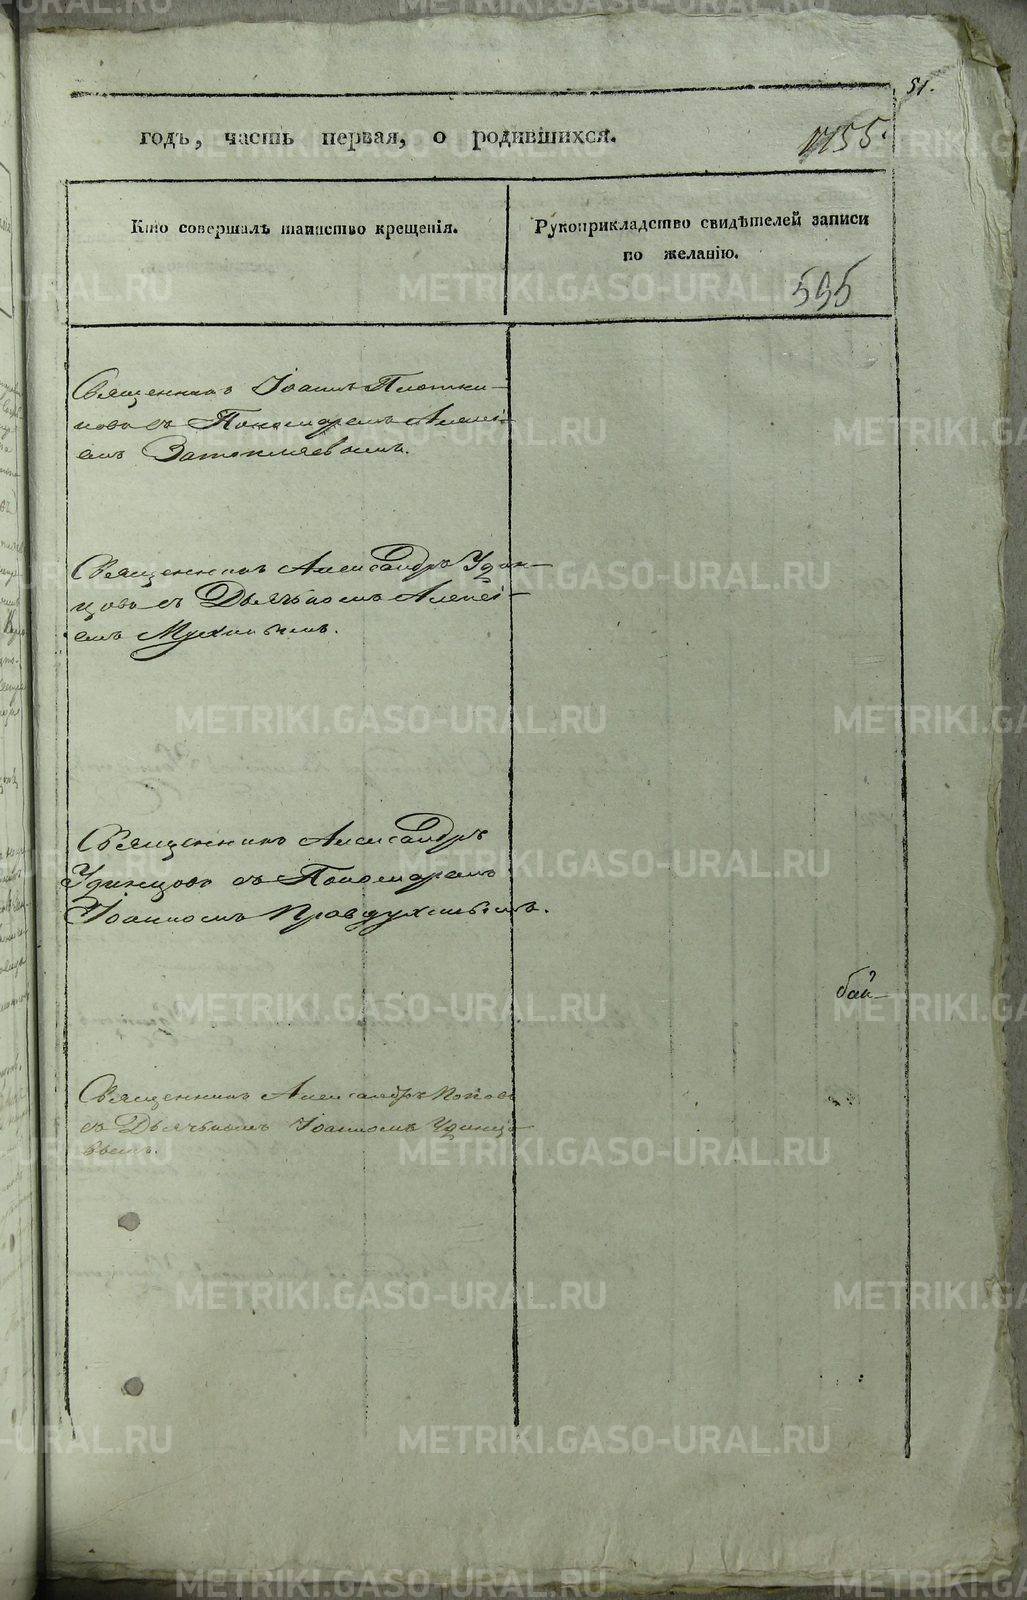 51.
годъ, часть первая, о родившихся.
1155.
Кто совершалъ таинство крещенія.
Рукоприкладство свидѣтелей записи
по желанію.
595
Священникъ Іоаннъ Плотни-
ковъ съ Пономаремъ Алексі-
емъ Затопляевымъ.
Священникъ Александръ Удин-
цовъ съ Дьячкомъ Алексі-
емъ Мухинымъ.
Священникъ Александръ
Удинцовъ съ Пономаремъ
Іоанномъ Правдухинымъ.
бай
Священникъ Александръ Поповъ
съ Дьячкомъ Іоанномъ Удинцо-
вымъ.
METRIKI.GASO-URAL.RU